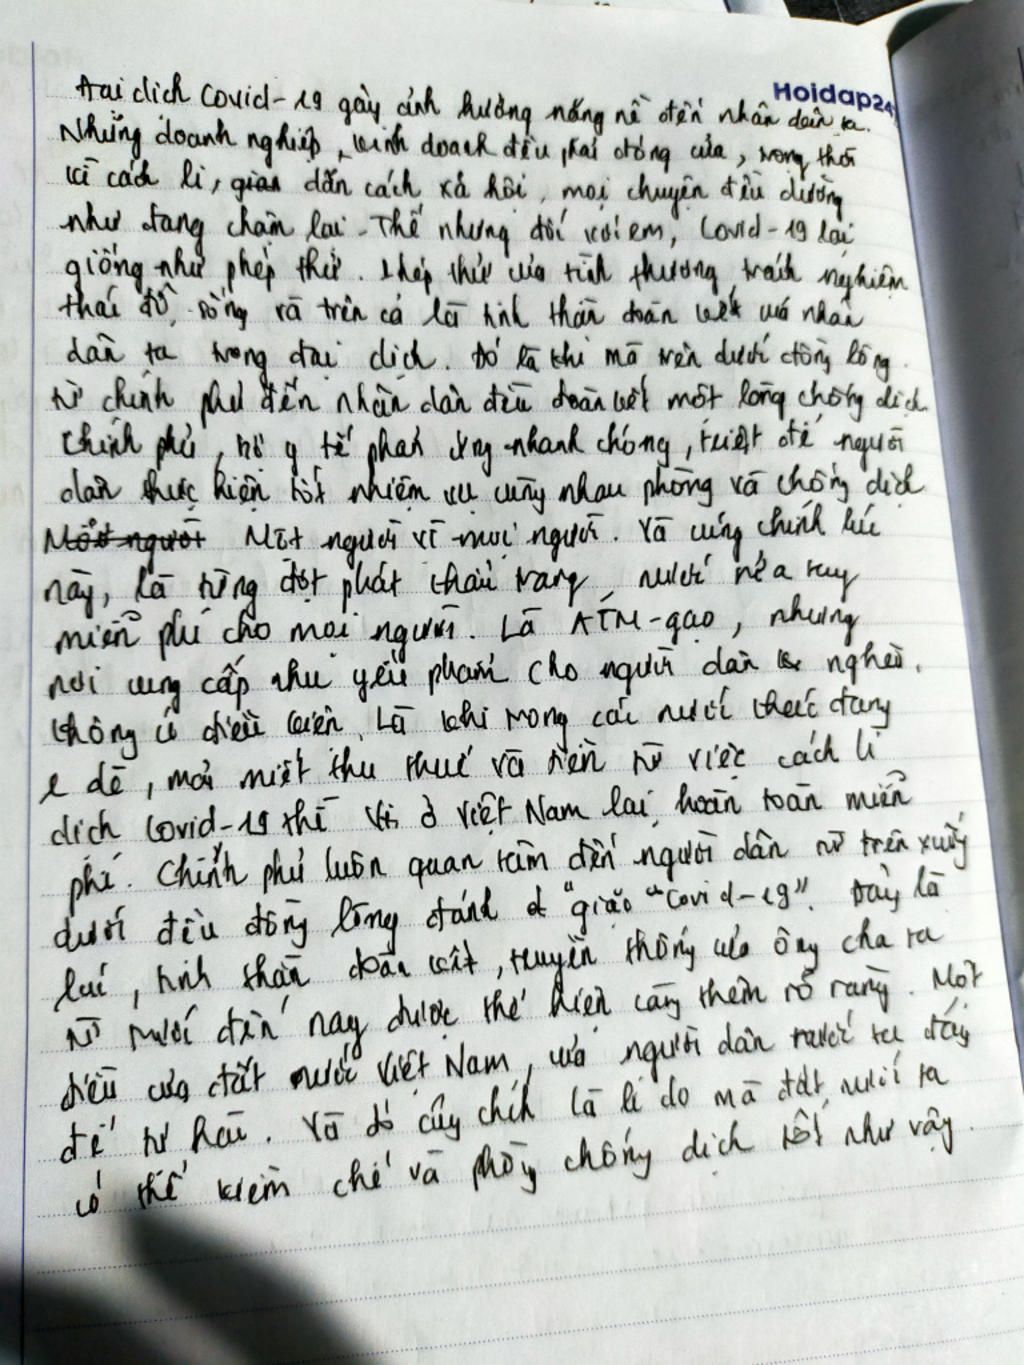 Hoidap24
Đại dịch Covid-19 gây ảnh hưởng nặng nề đến nhân dân ta.
Những doanh nghiệp, kinh doanh đều phải đóng cửa, trong thời
kì cách li, gian dãn cách xã hội, mọi chuyện đều dường
như đang chậm lại. Thế nhưng đối với em, Covid-19 lại
giống như phép thử. Phép thử của tình thương, trách nghiệm
thái độ sống và trên cả là tinh thần đoàn kết của nhân
dân ta trong đại dịch. Đó là khi mà trên dưới đồng lòng.
từ chính phủ đến nhân dân đều đoàn kết một lòng chống dịch
Chính phủ, bộ y tế phản ứng nhanh chóng, triệt để người
dân thực hiện tốt nhiệm vụ cùng nhau phòng và chống dịch
Mỗi người Một người vì mọi người. Và cũng chính lúc
này, là từng đợt phát khẩu trang, nước rửa tay
miễn phí cho mọi người. Là ATM-gạo, những
nơi cung cấp nhu yếu phẩm cho người dân nghèo,
không có điều kiện. Là khi trong các nước khác đang
e dè, mải miết thu thuế và tiền từ việc cách li
dịch Covid-19 thì ở Việt Nam lại hoàn toàn miễn
phí. Chính phủ luôn quan tâm đến người dân từ trên xuống
dưới đều đồng lòng đánh "giặc "Covid-19". Đây là
lúc, tinh thần đoàn kết, truyền thống của ông cha ta
từ trước đến nay được thể hiện càng thêm rõ ràng. Một
điều của đất nước Việt Nam, của người dân nước ta đáng
để tự hào. Và đó cũng chính là lí do mà đất nước ta
có thể kiềm chế và phòng chống dịch tốt như vậy.